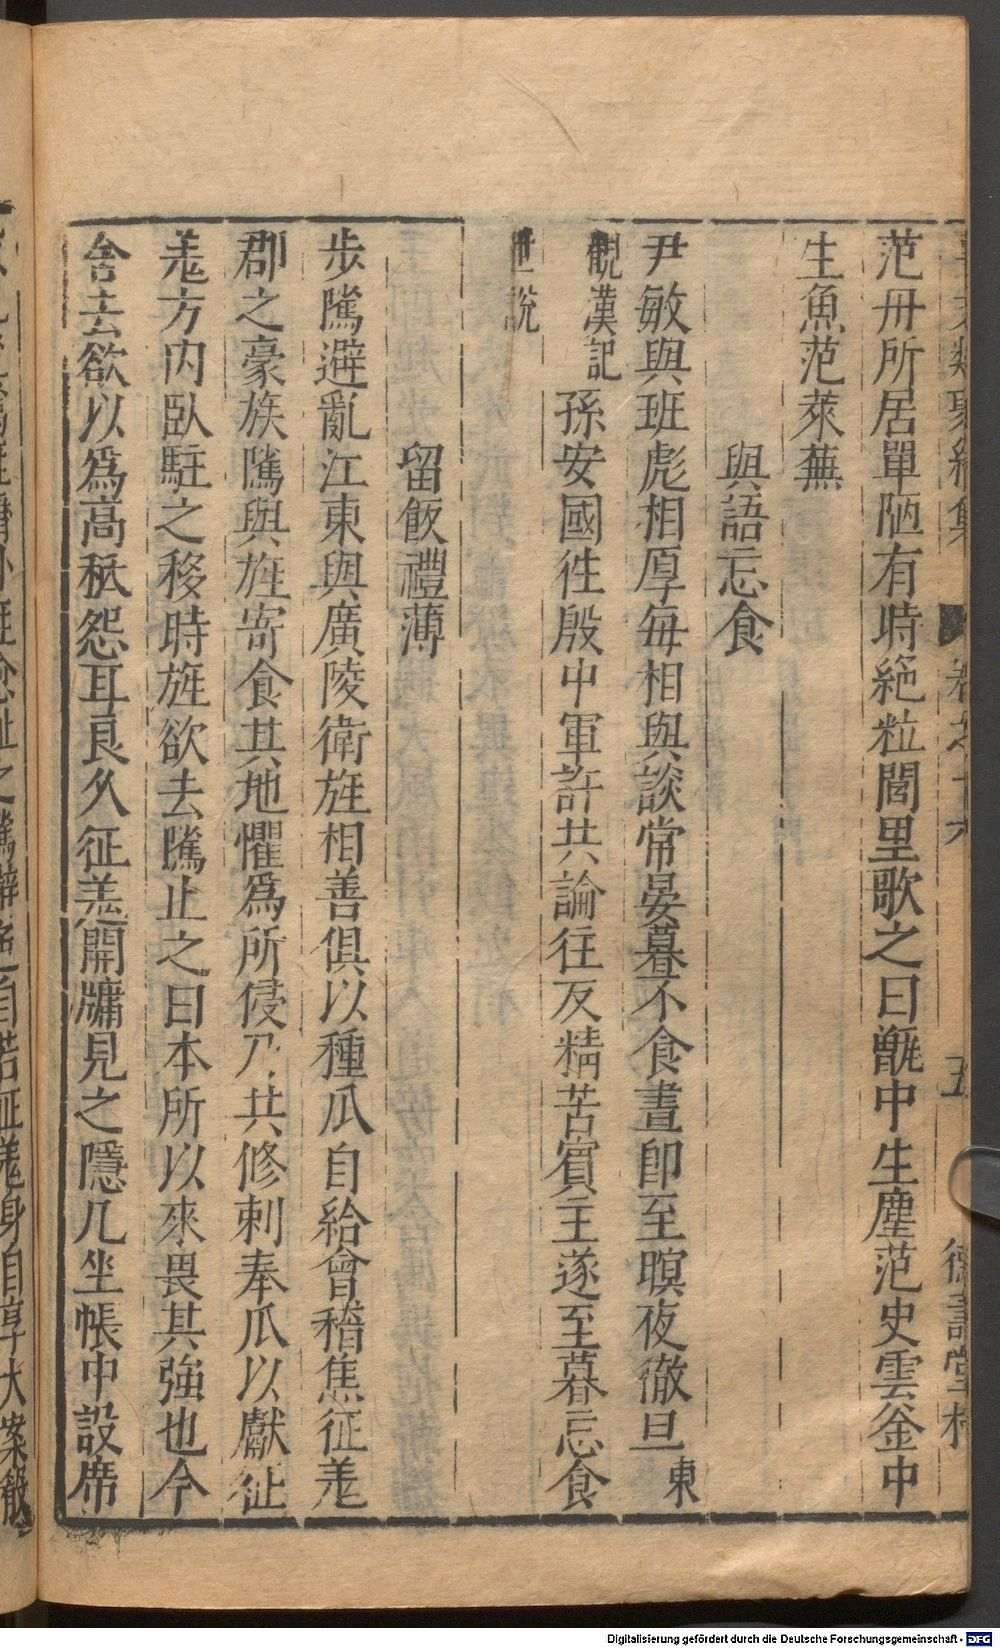 范丹所居單陋有時絕粒閭里歌之曰甑中生塵范史雲釜中
生魚范萊蕪
與語忘食
尹敏與班彪相厚每相與談常晏暮不食晝即至暝夜徹旦東
觀漢記
孫安國徃殷中軍許共論往反精苦賓主遂至暮忘食
世說
留飯禮薄
步隲避亂江東與廣陵衛旌相善俱以種瓜自給會稽焦征羗
郡之豪族隲與旌寄食其地懼爲所侵乃共修刺奉瓜以獻征
羗方内臥駐之移時旌欲去隲止之曰本所以來畏其強也今
舍去欲以爲高秪怨耳良久征羗開牖見之隱几坐帳中設席
Digitalisierung gefördert durch die Deutsche Forschungsgemeinschaft - DFG